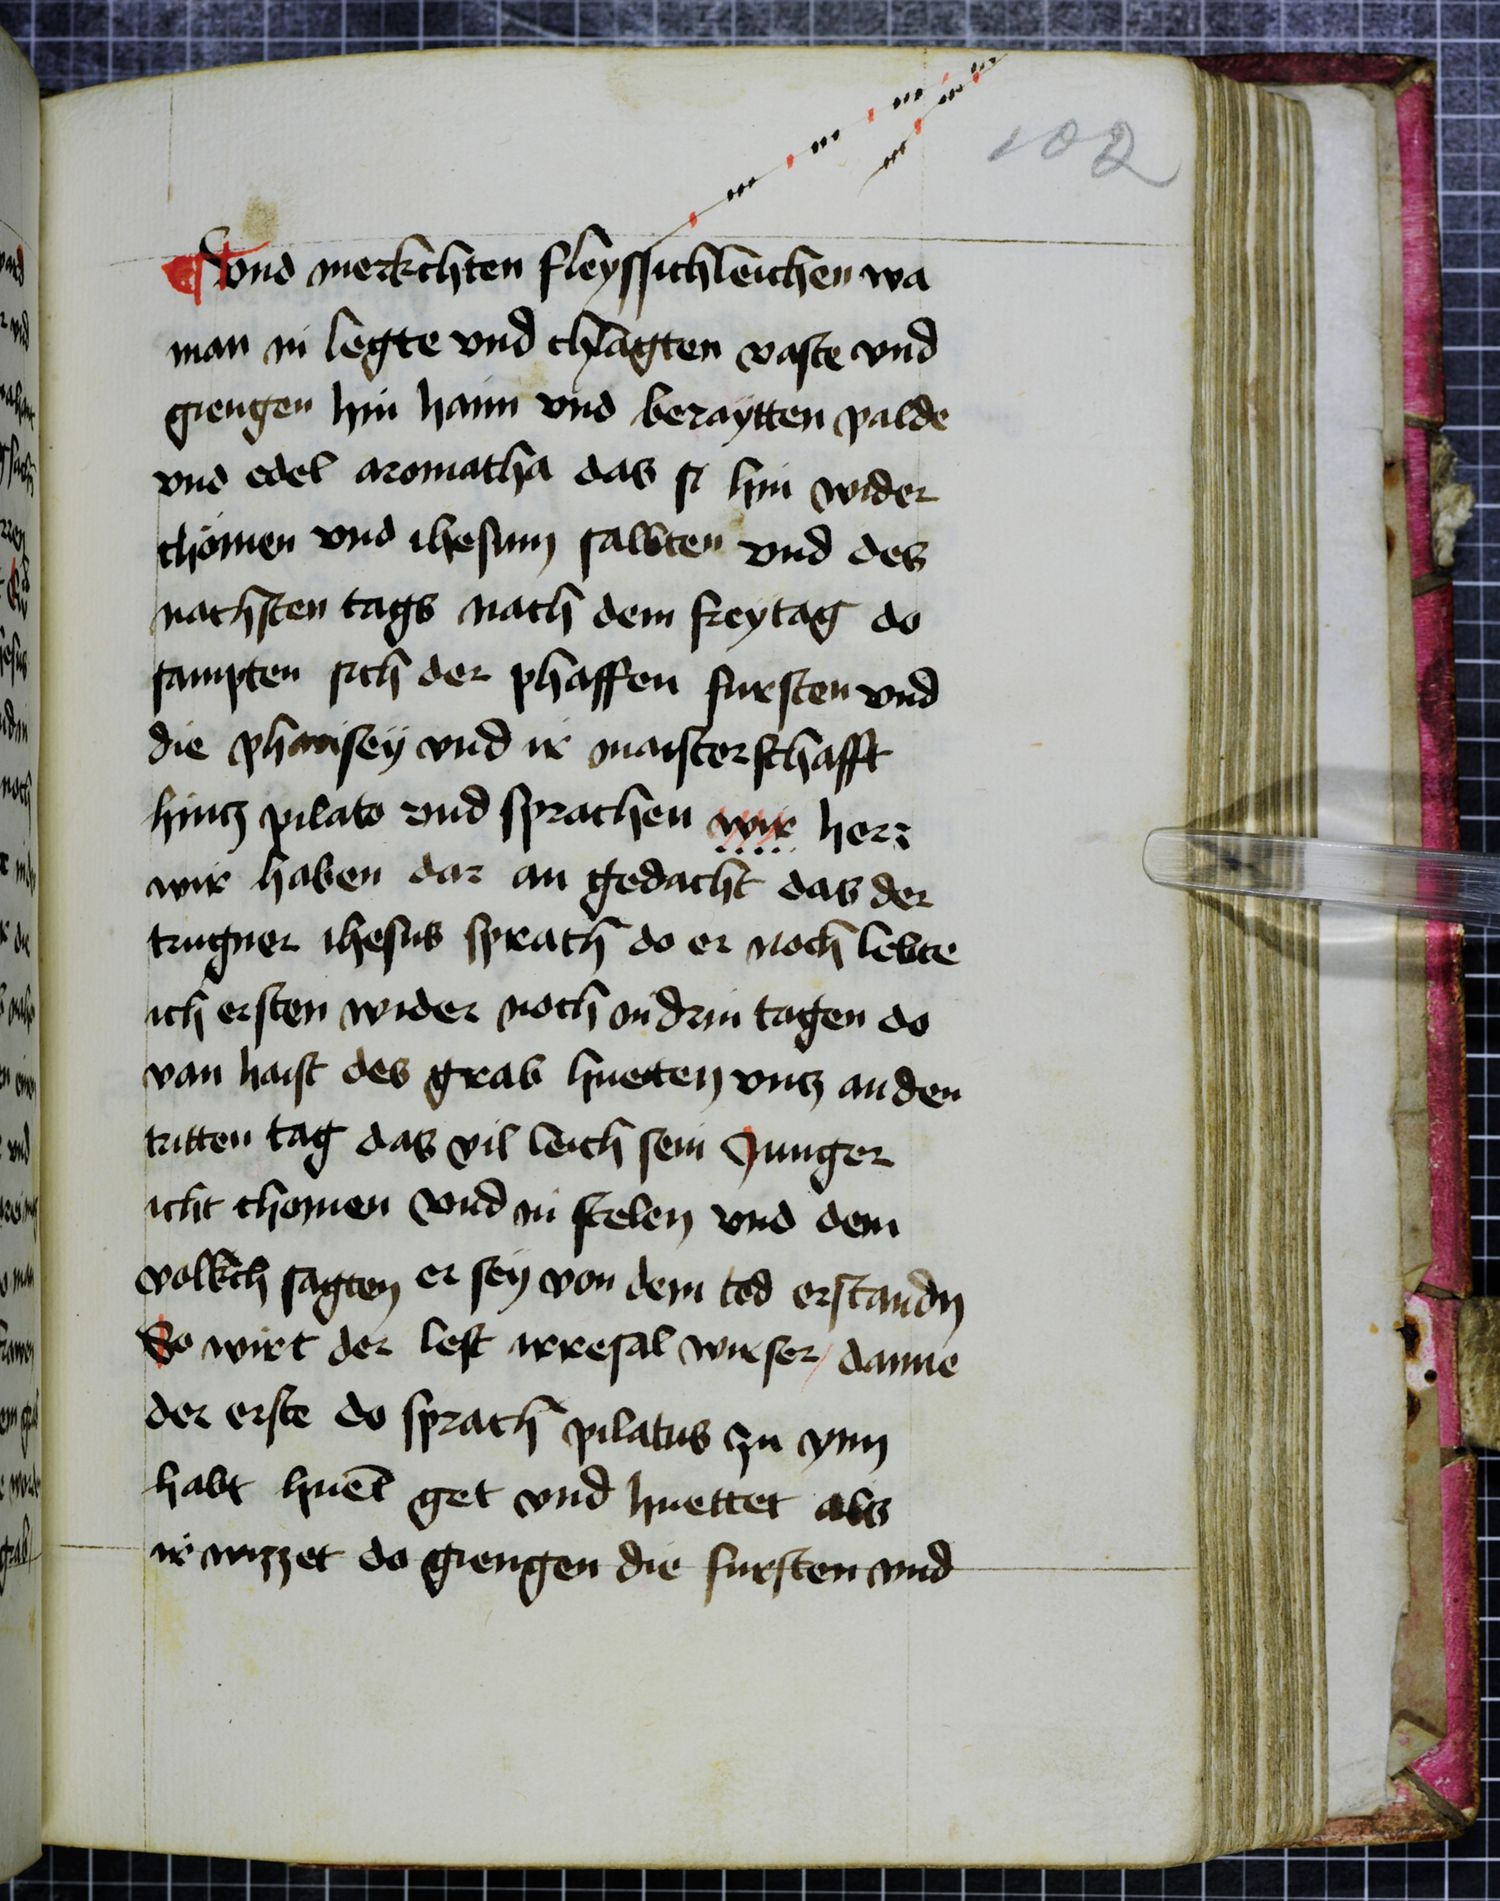 102
vnd merkchten fleyssichleichen wa
man in legte vnd chlagten vaste vnd
giengen hin haim vnd beraytten palde
vnd edel aromatha das si hin wider
chömen vnd ihesum salbten vnd des
nachsten tags nach dem freytag do
sampten sich der phaffen fursten vnd
die pharisey vnd ir maisterschafft
hintz pilato vnd sprachen wir herr
wir haben dar an gedacht das der
trugner ihesus sprach do er noch lebte
ich ersten wider noch in drin tagen do
van haist des grab hueten vntz an den
tritten tag das vil leich sein Junger
icht chomen vnd in stelen vnd dem
volkch sagten er sey von dem tod erstandn
So wirt der lest irresal wirser danne
der erste do sprach pilatus zu ynn
habt huet get vnd huettet als
ir wizzet do giengen die fursten vnd